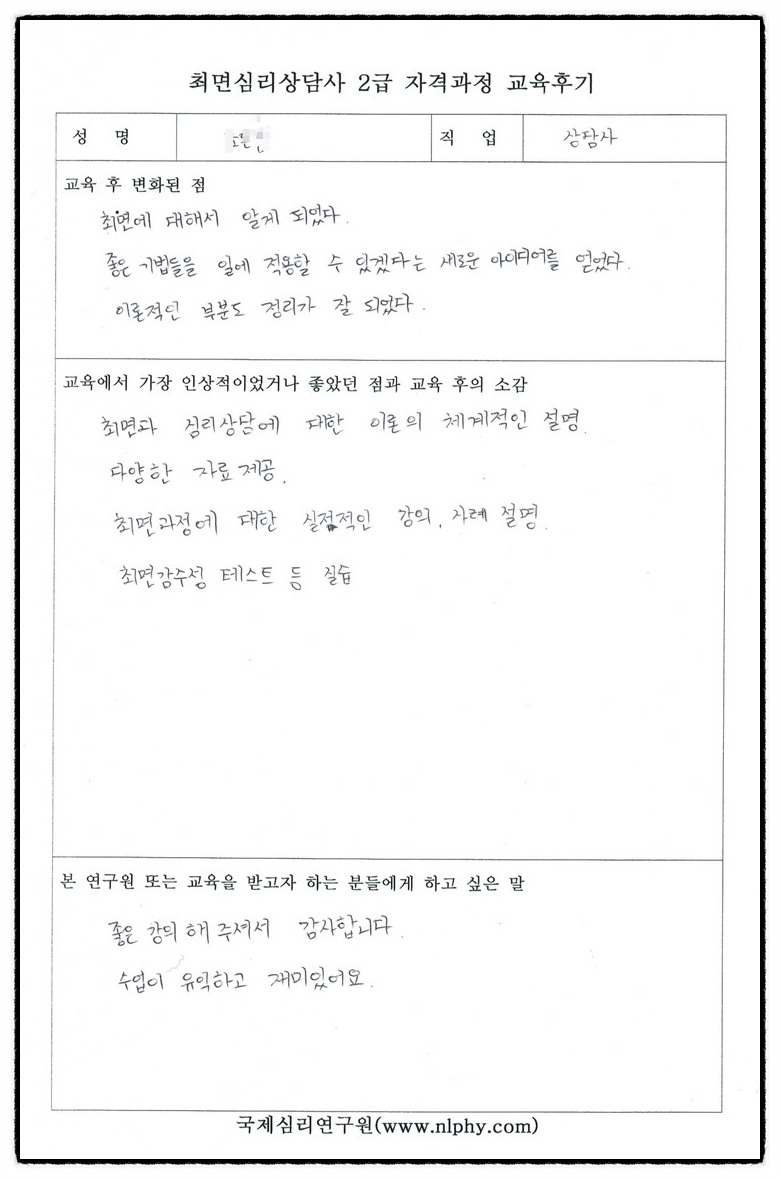 최면심리상담사 2급 자격과정 교육후기
성 명
직 업 상담사
교육 후 변화된 점
최면에 대해서 알게 되었다.
좋은 기법들을 일에 적용할 수 있겠다는 새로운 아이디어를 얻었다.
이론적인 부분도 정리가 잘 되었다.
교육에서 가장 인상적이었거나 좋았던 점과 교육 후의 소감
최면과 심리상담에 대한 이론의 체계적인 설명.
다양한 자료 제공.
최면과정에 대한 실점적인 강의, 사례 설명.
최면감수성 테스트 등 실습
본 연구원 또는 교육을 받고자 하는 분들에게 하고 싶은 말
좋은 강의 해 주셔서 감사합니다.
수업이 유익하고 재미있어요.
국제심리연구원(www.nlphy.com)